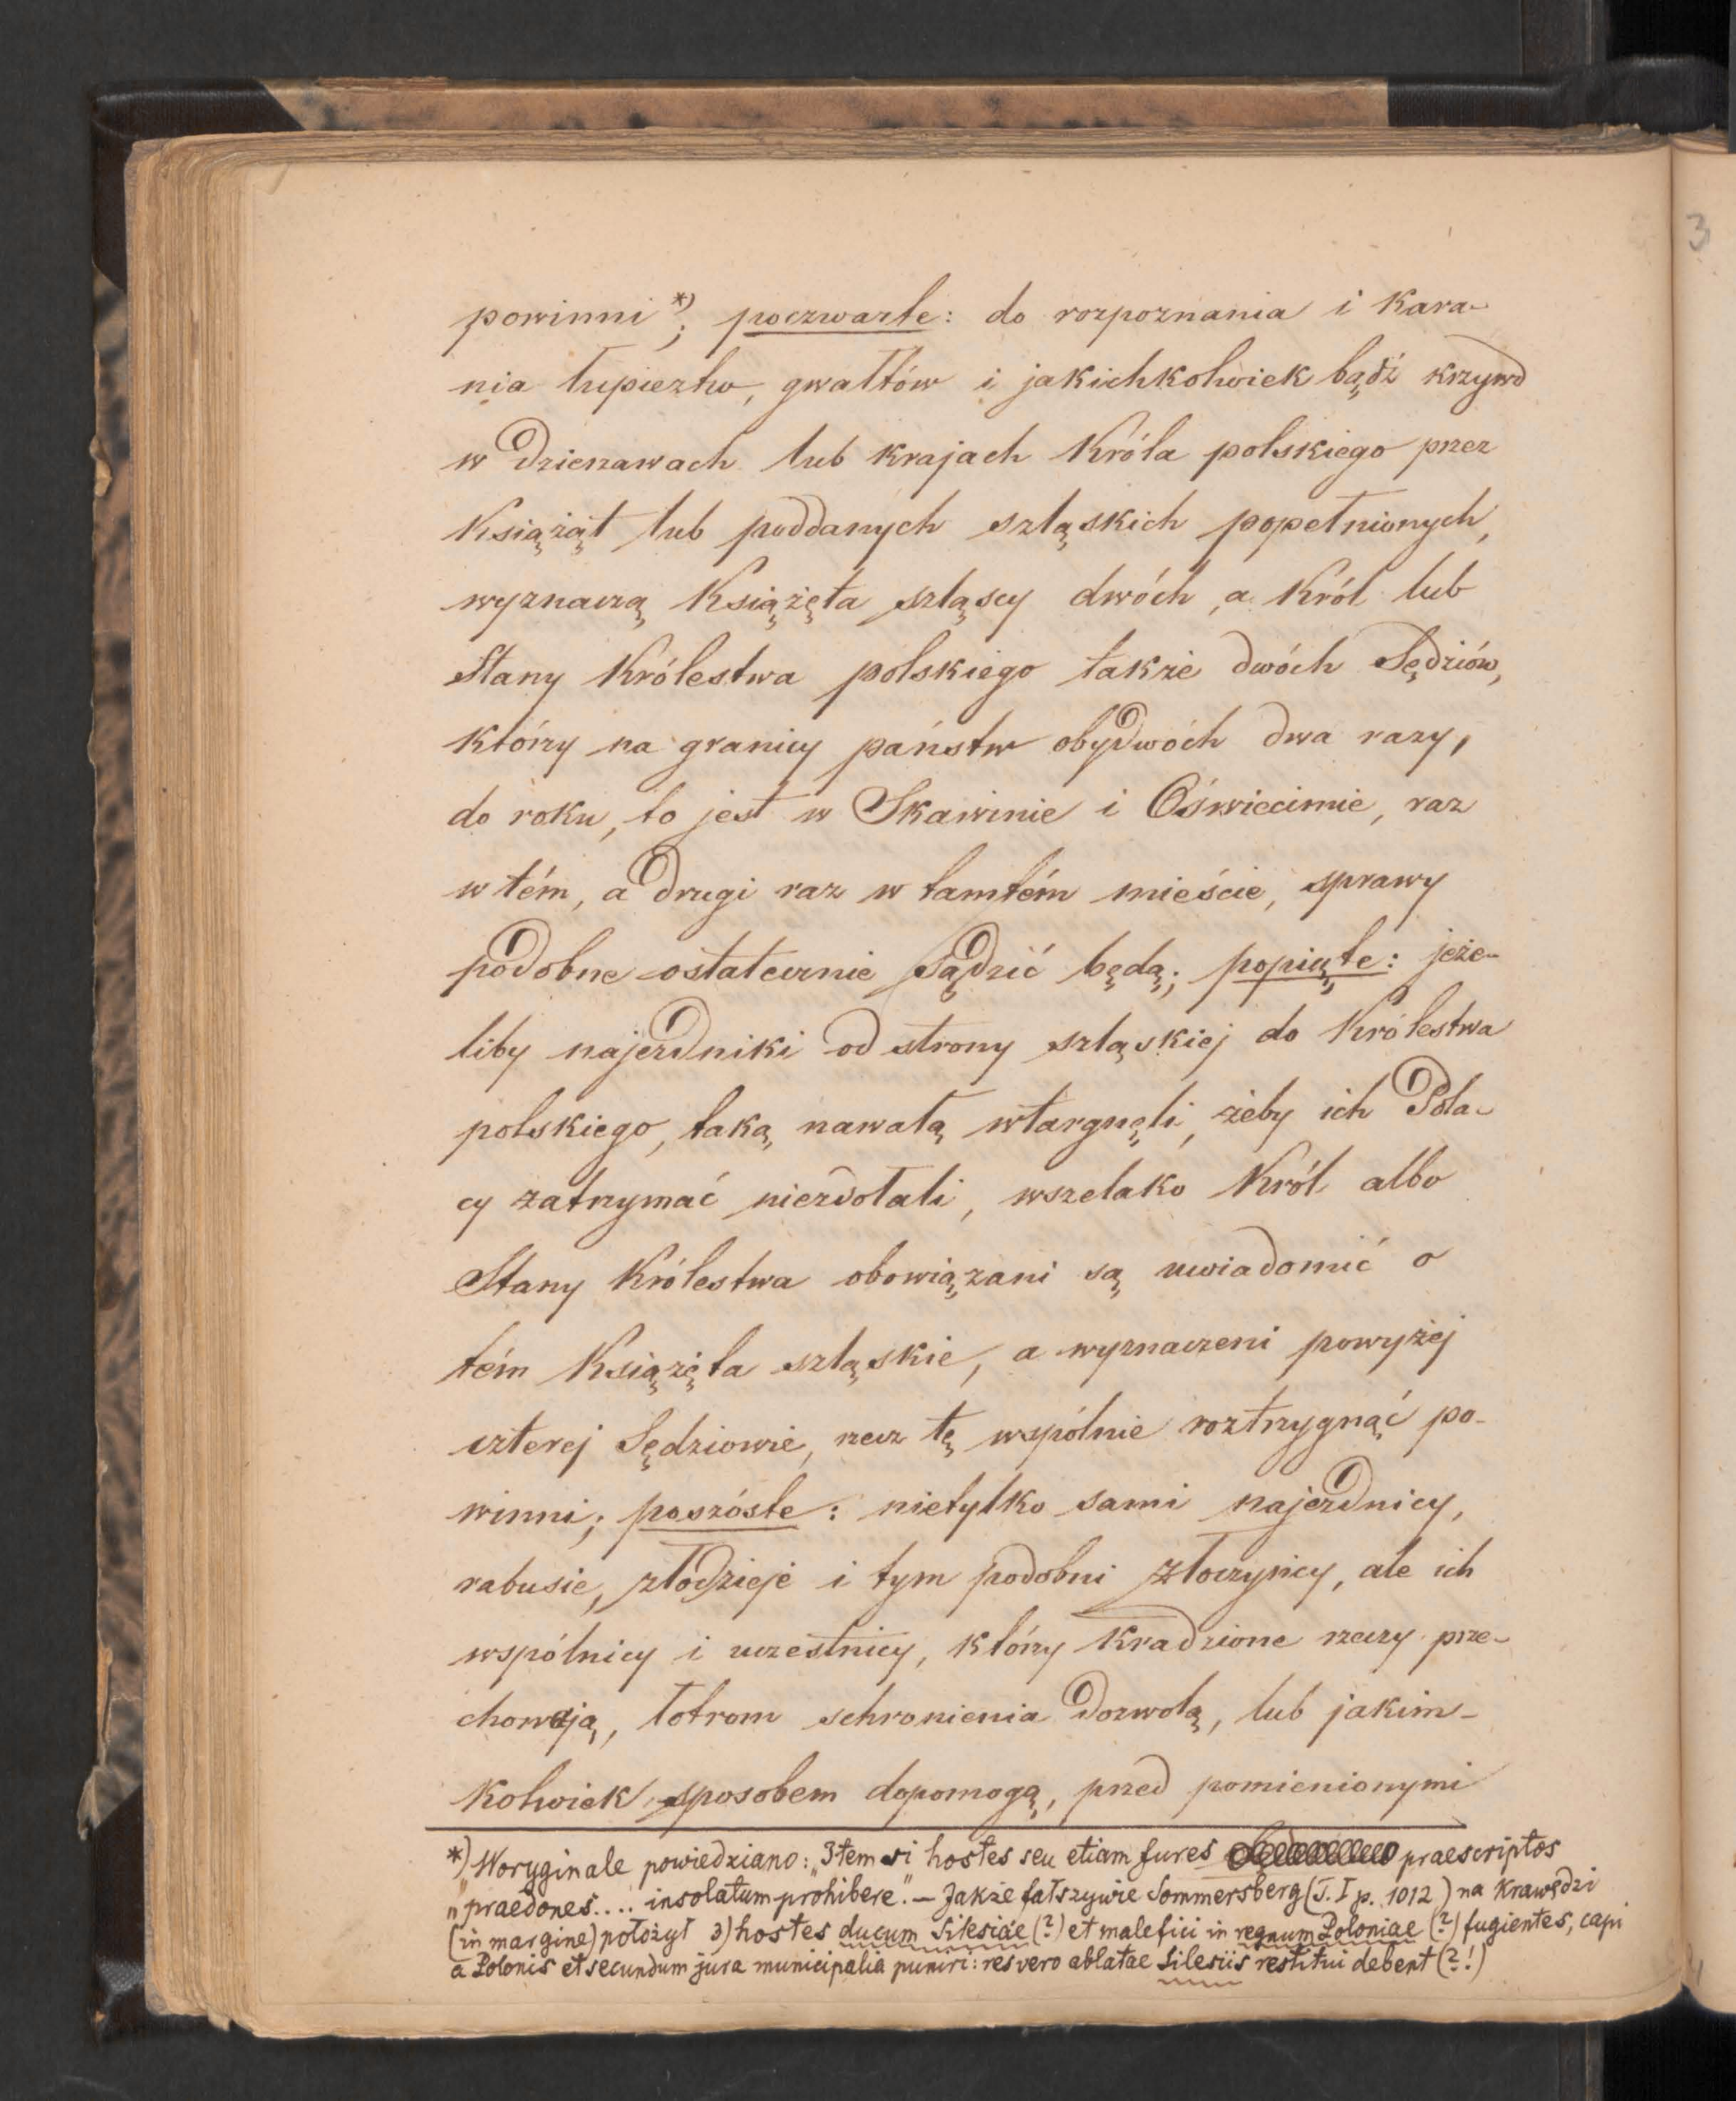 powinni*); poczwarte: do rozpoznania i kara-
nia łupieztw, gwałtów i jakichkolwiek bądź krzywd
w dzierzawach lub krajach Króla polskiego przez
Książąt lub poddanych szląskich popełnionych,
wyznaczą Książęta szląscy dwóch, a Król lub
Stany Królestwa polskiego także dwóch Sędziów,
którzy na granicy państw obydwóch dwa razy,
do roku, to jest w Skawinie i Oświecimie, raz
w tém, a drugi raz w tamtém mieście, sprawy
podobne ostatecznie sądzić będą; popiąte: jeże-
liby najezdniki od strony szląskiej do Królestwa
polskiego, taką nawałą wtargnęli, żeby ich Pola-
cy zatrzymać niezdołali, wszelako Król albo
Stany Królestwa obowiązani są uwiadomić o
tém Książęta szląskie, a wyznaczeni powyżej
czterej Sędziowie, rzecz tę wspólnie roztrzygnąć po-
winni; poszóste: nietylko sami najezdnicy,
rabusie, złodzieje i tym podobni złoczyńcy, ale ich
wspólnicy i uczestnicy, którzy kradzione rzeczy prze-
chowają, łotrom schronienia dozwolą, lub jakim-
kolwiek sposobem dopomogą, przed pomienionymi
*) W oryginale powiedziano: „Item si hostes seu etiam fures praescriptos
„praedones.... insolatum prohibere." — Jakże fałszywie Sommersberg (T. I p. 1012) na krawędzi
(in margine) położył 3) hostes ducum Silesiae (?) et malefici in regnum Poloniae (?) fugientes, capi
a Polonis et secundum jura municipalia puniri: res vero ablatae Silesiis restitui debent (?!)
3